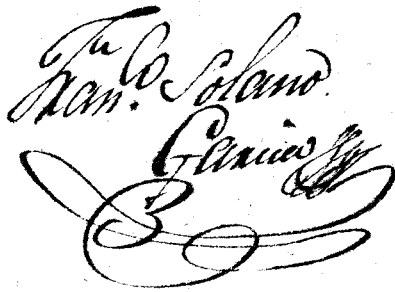 Fran.co Solano.
Garcia